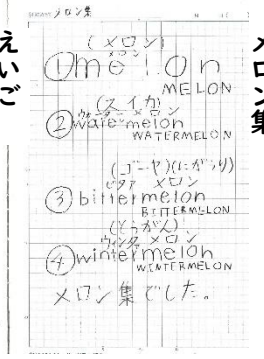 メロン集
えいご
メロン集
(メロン)
メロン
①melon
MELON
(スイカ)
ウォーター メロン
②watermelon
WATERMELON
(ゴーヤ)(にがうり)
ビタァ メロン
③bittermelon
BITTERMELON
(とうがん)
ウィンター メロン
④wintermelon
WINTERMELON
メロン集でした。